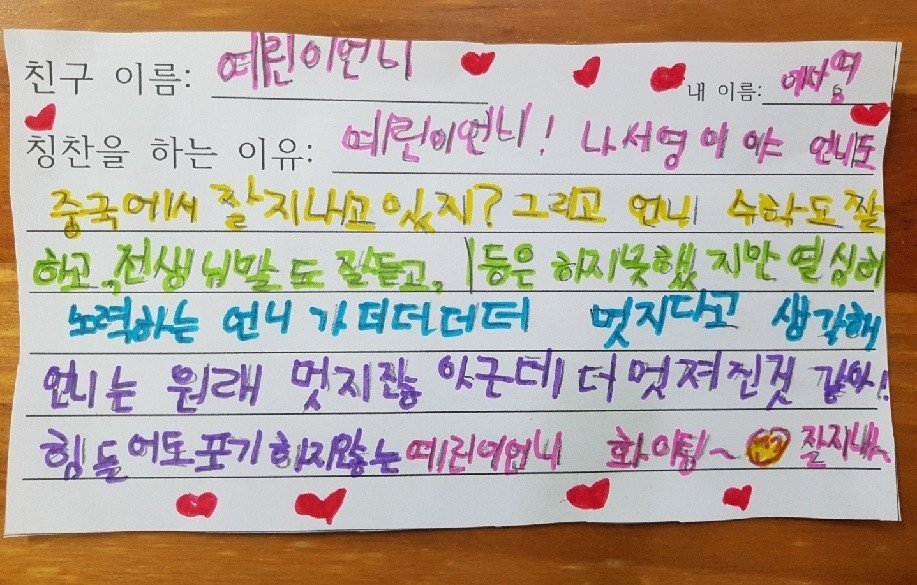 친구 이름: 예린이언니 내 이름: 이서영
칭찬을 하는 이유: 예린이언니! 나서영이야 언니도
중국에서 잘지내고 있지? 그리고 언니 수학도 잘
하고, 선생님말도 잘듣고, 1등은 하지못했지만 열심히
노력하는 언니가 더더더더 멋지다고 생각해
언니는 원래 멋지잖아 근데 더 멋져진것 같아!
힘들어도포기하지않는예린이언니 화이팅~ 잘지내~